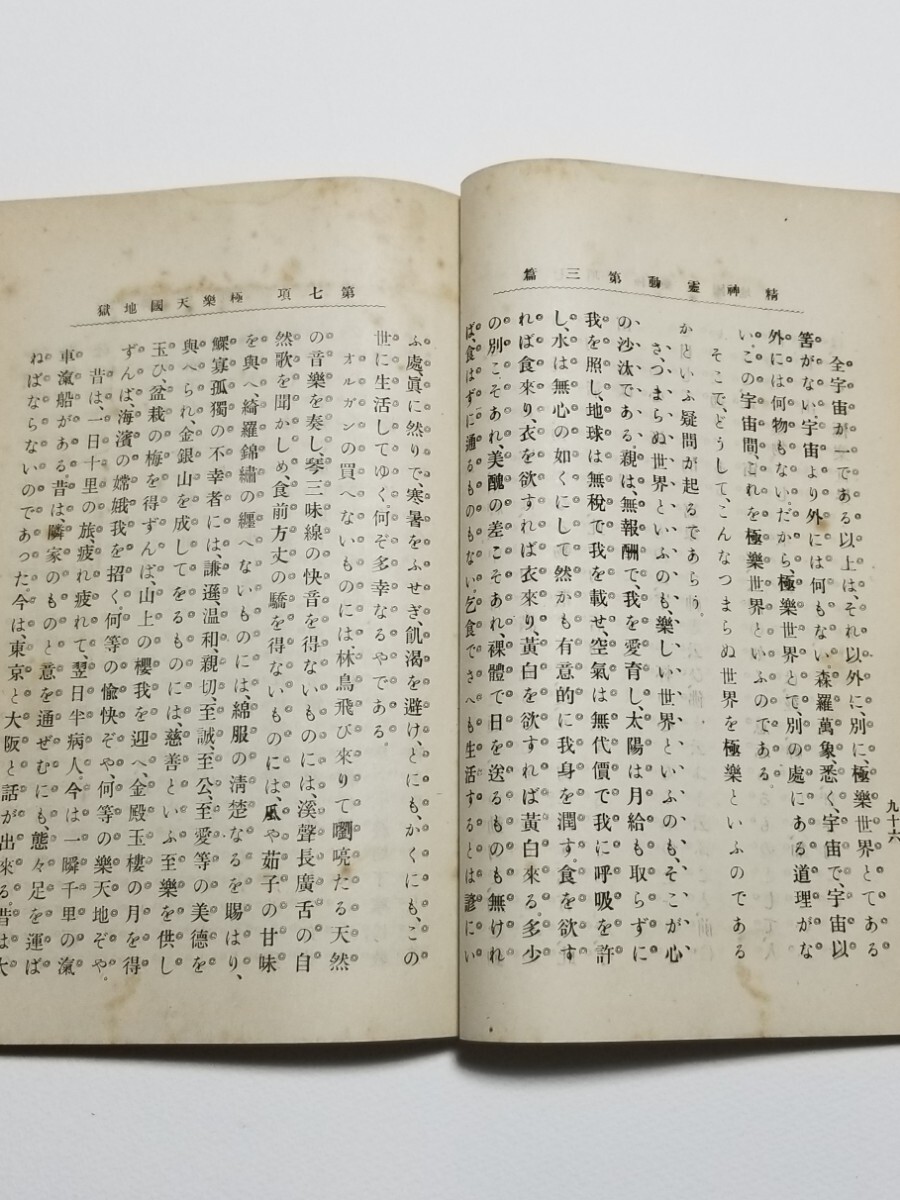 精神靈動第三篇
九十六
全宇宙が一である以上は、それ以外に、別に、極樂世界とてある
筈がない、宇宙より外には何もない、森羅萬象、悉く、宇宙で、宇宙以
外には何物もない。だから、極樂世界とて、別の處にある道理がな
い。この宇宙間、これを極樂世界といふのである。
そこで、どうして、こんなつまらぬ世界を極樂といふのである
かといふ疑問が起るであらう。
さ、つまらぬ、世界、といふの、も、樂しい世界、といふの、も、そこ、が心
の、沙汰で、ある、親は、無報酬で、我を愛育し、太陽は月給も取らずに
我を照し、地球は無稅で我を載せ、空氣は無代價で我に呼吸を許
し、水は無心の如くにして然かも有意的に我身を潤す。食を欲す
れば食來り、衣を欲すれば衣來り、黃白を欲すれば黃白來る。多少
の別こそあれ、美醜の差こそあれ、裸體で日を送るものも無けれ
ば、食はずに通るものもない、乞食でさへも生活するとは、諺にい
第七項 極樂天國地獄
ふ處、眞に然りで、寒暑をふせぎ、飢渴を避け、とにも、かくにも、この
世に生活してゆく、何ぞ多幸なるやである。
オルガンの買へないものには、林鳥飛び來りて嚠喨たる天然
の音樂を奏し、琴三味線の快音を得ないものには、溪聲長廣舌の自
然歌を聞かしめ、食前方丈の驕を得ないものには、風や茹子の甘味
を與へ、綺羅錦繡の纒へないものには、綿服の淸楚なるを賜はり、
鰥寡孤獨の不幸者には、謙遜、溫和、親切、至誠、至公、至愛等の美德を
與へられ、金銀山を成してをるものには、慈善といふ至樂を供し
玉ひ、盆栽の梅を得ずんば、山上の櫻我を迎へ、金殿玉樓の月を得
ずんば、海濱の嫦娥我を招く、何等の愉快ぞや、何等の樂天地ぞや。
昔は、一日十里の旅、疲れ疲れて、翌日半病人。今は一瞬千里の滊
車滊船がある。昔は、隣家のものと意を通ぜむにも、態々足を運ば
ねばならないのであつた。今は、東京と大阪と話が出來る。昔は大